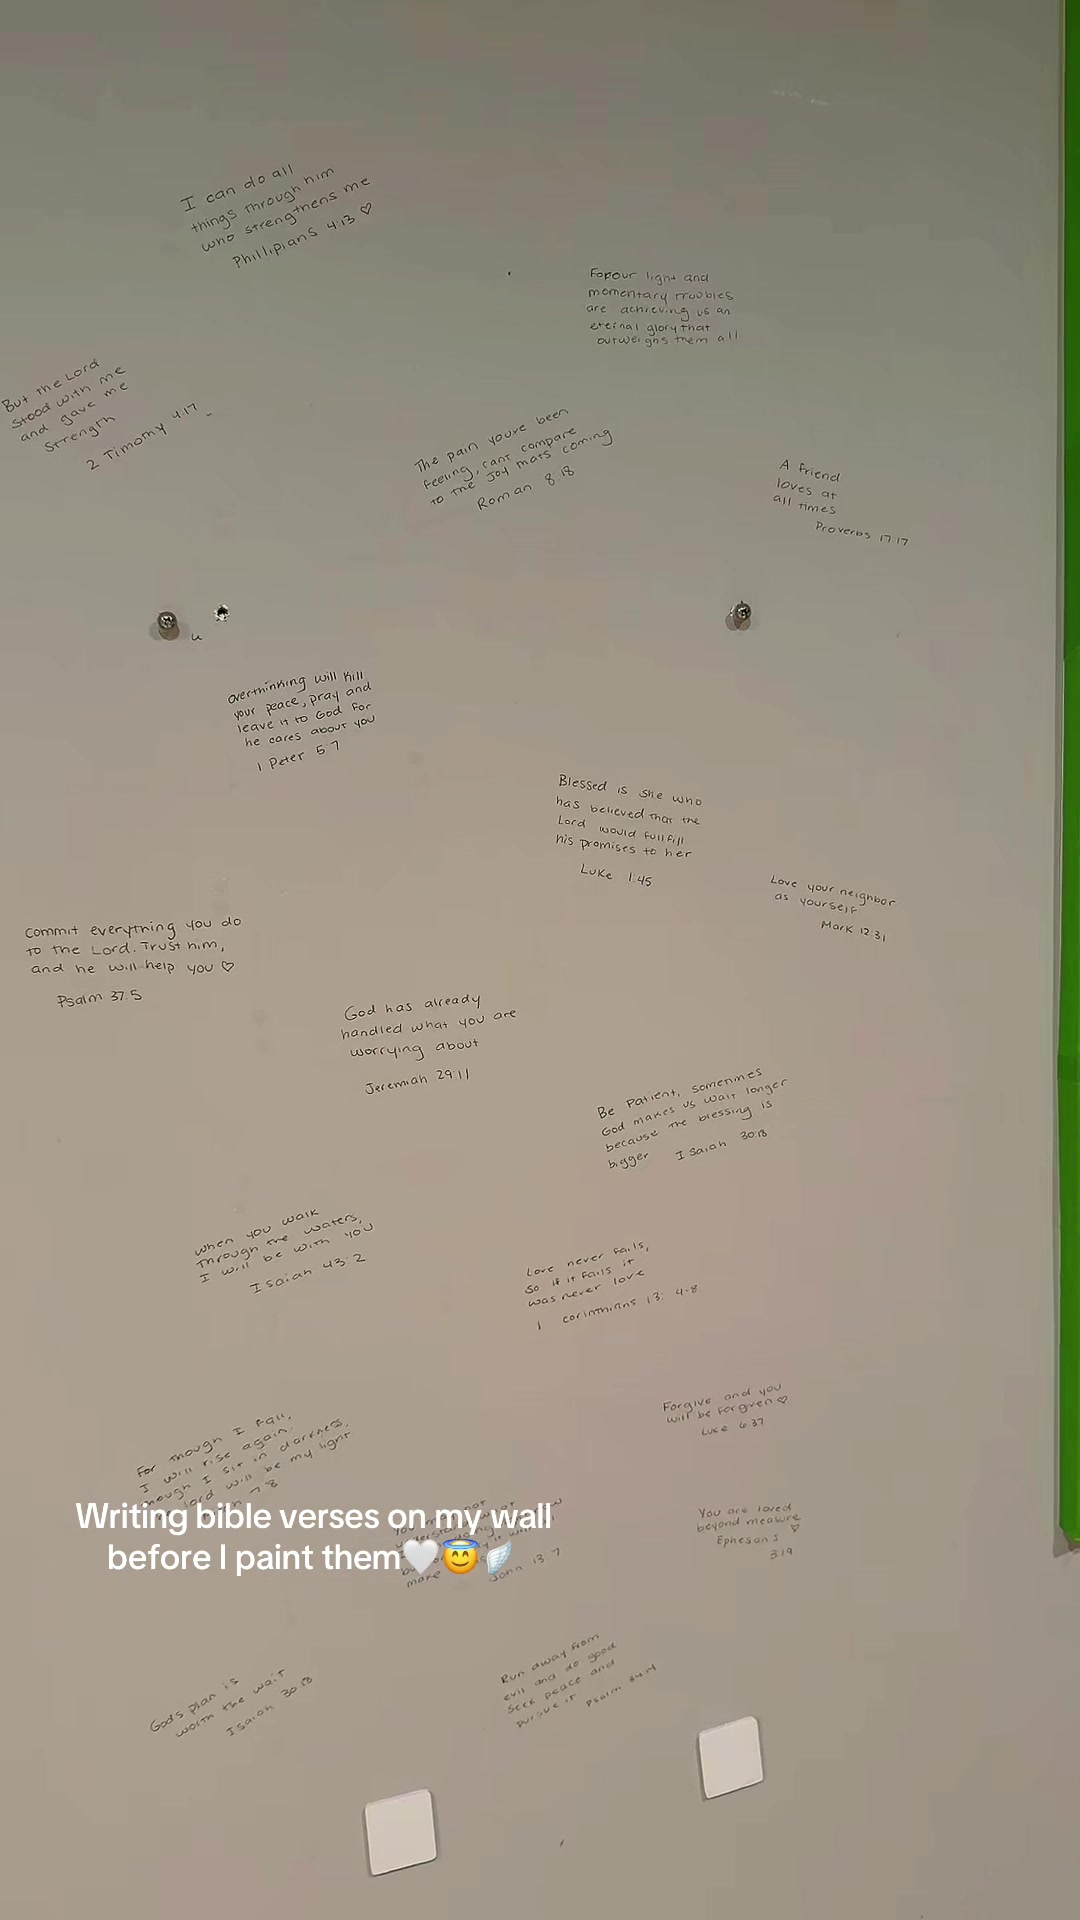 I can do all
things through him
who strengthens me
Phillipians 4:13 ♡
Forour light and
momentary troubles
are achieving us an
etern al glory that
outweighs them all
But the Lord
stood with me
and gave me
strength
2 Timothy 4:17
The pain youve been
feeling, cant compare
to the Joy thats coming
Roman 8:18
A friend
loves at
all times
Proverbs 17:17
u
overthinking will kill
your peace, pray and
leave it to God for
he cares about you
1 Peter 5:7
Blessed is she who
has believed that the
Lord would fullfill
his promises to her
Luke 1:45
Love your neighbor
as yourself
Mark 12:31
commit everything you do
to the Lord. Trust him,
and he will help you ♡
Psalm 37:5
God has already
handled what you are
worrying about
Jeremiah 29:11
Be patient, sometimes
God makes us wait longer
because the blessing is
bigger Isaiah 30:18
when you walk
through the waters,
I will be with you
Isaiah 43:2
Love never fails,
so if it fails it
was never love
1 corinthians 13: 4-8
Forgive and you
will be forgiven ♡
Luke 6:37
For though I fall,
I will rise again.
though I sit in darkness,
lord will be my light
7:8
Writing bible verses on my wall
before I paint them🤍😇🪽
You
not
make
John 13:7
You are loved
beyond measure ♡
Ephesans
3:19
Gods plan is
worth the wait
Isaiah 30:18
Run away from
evil and do good
seek peace and
pursue it Psalm 34:14